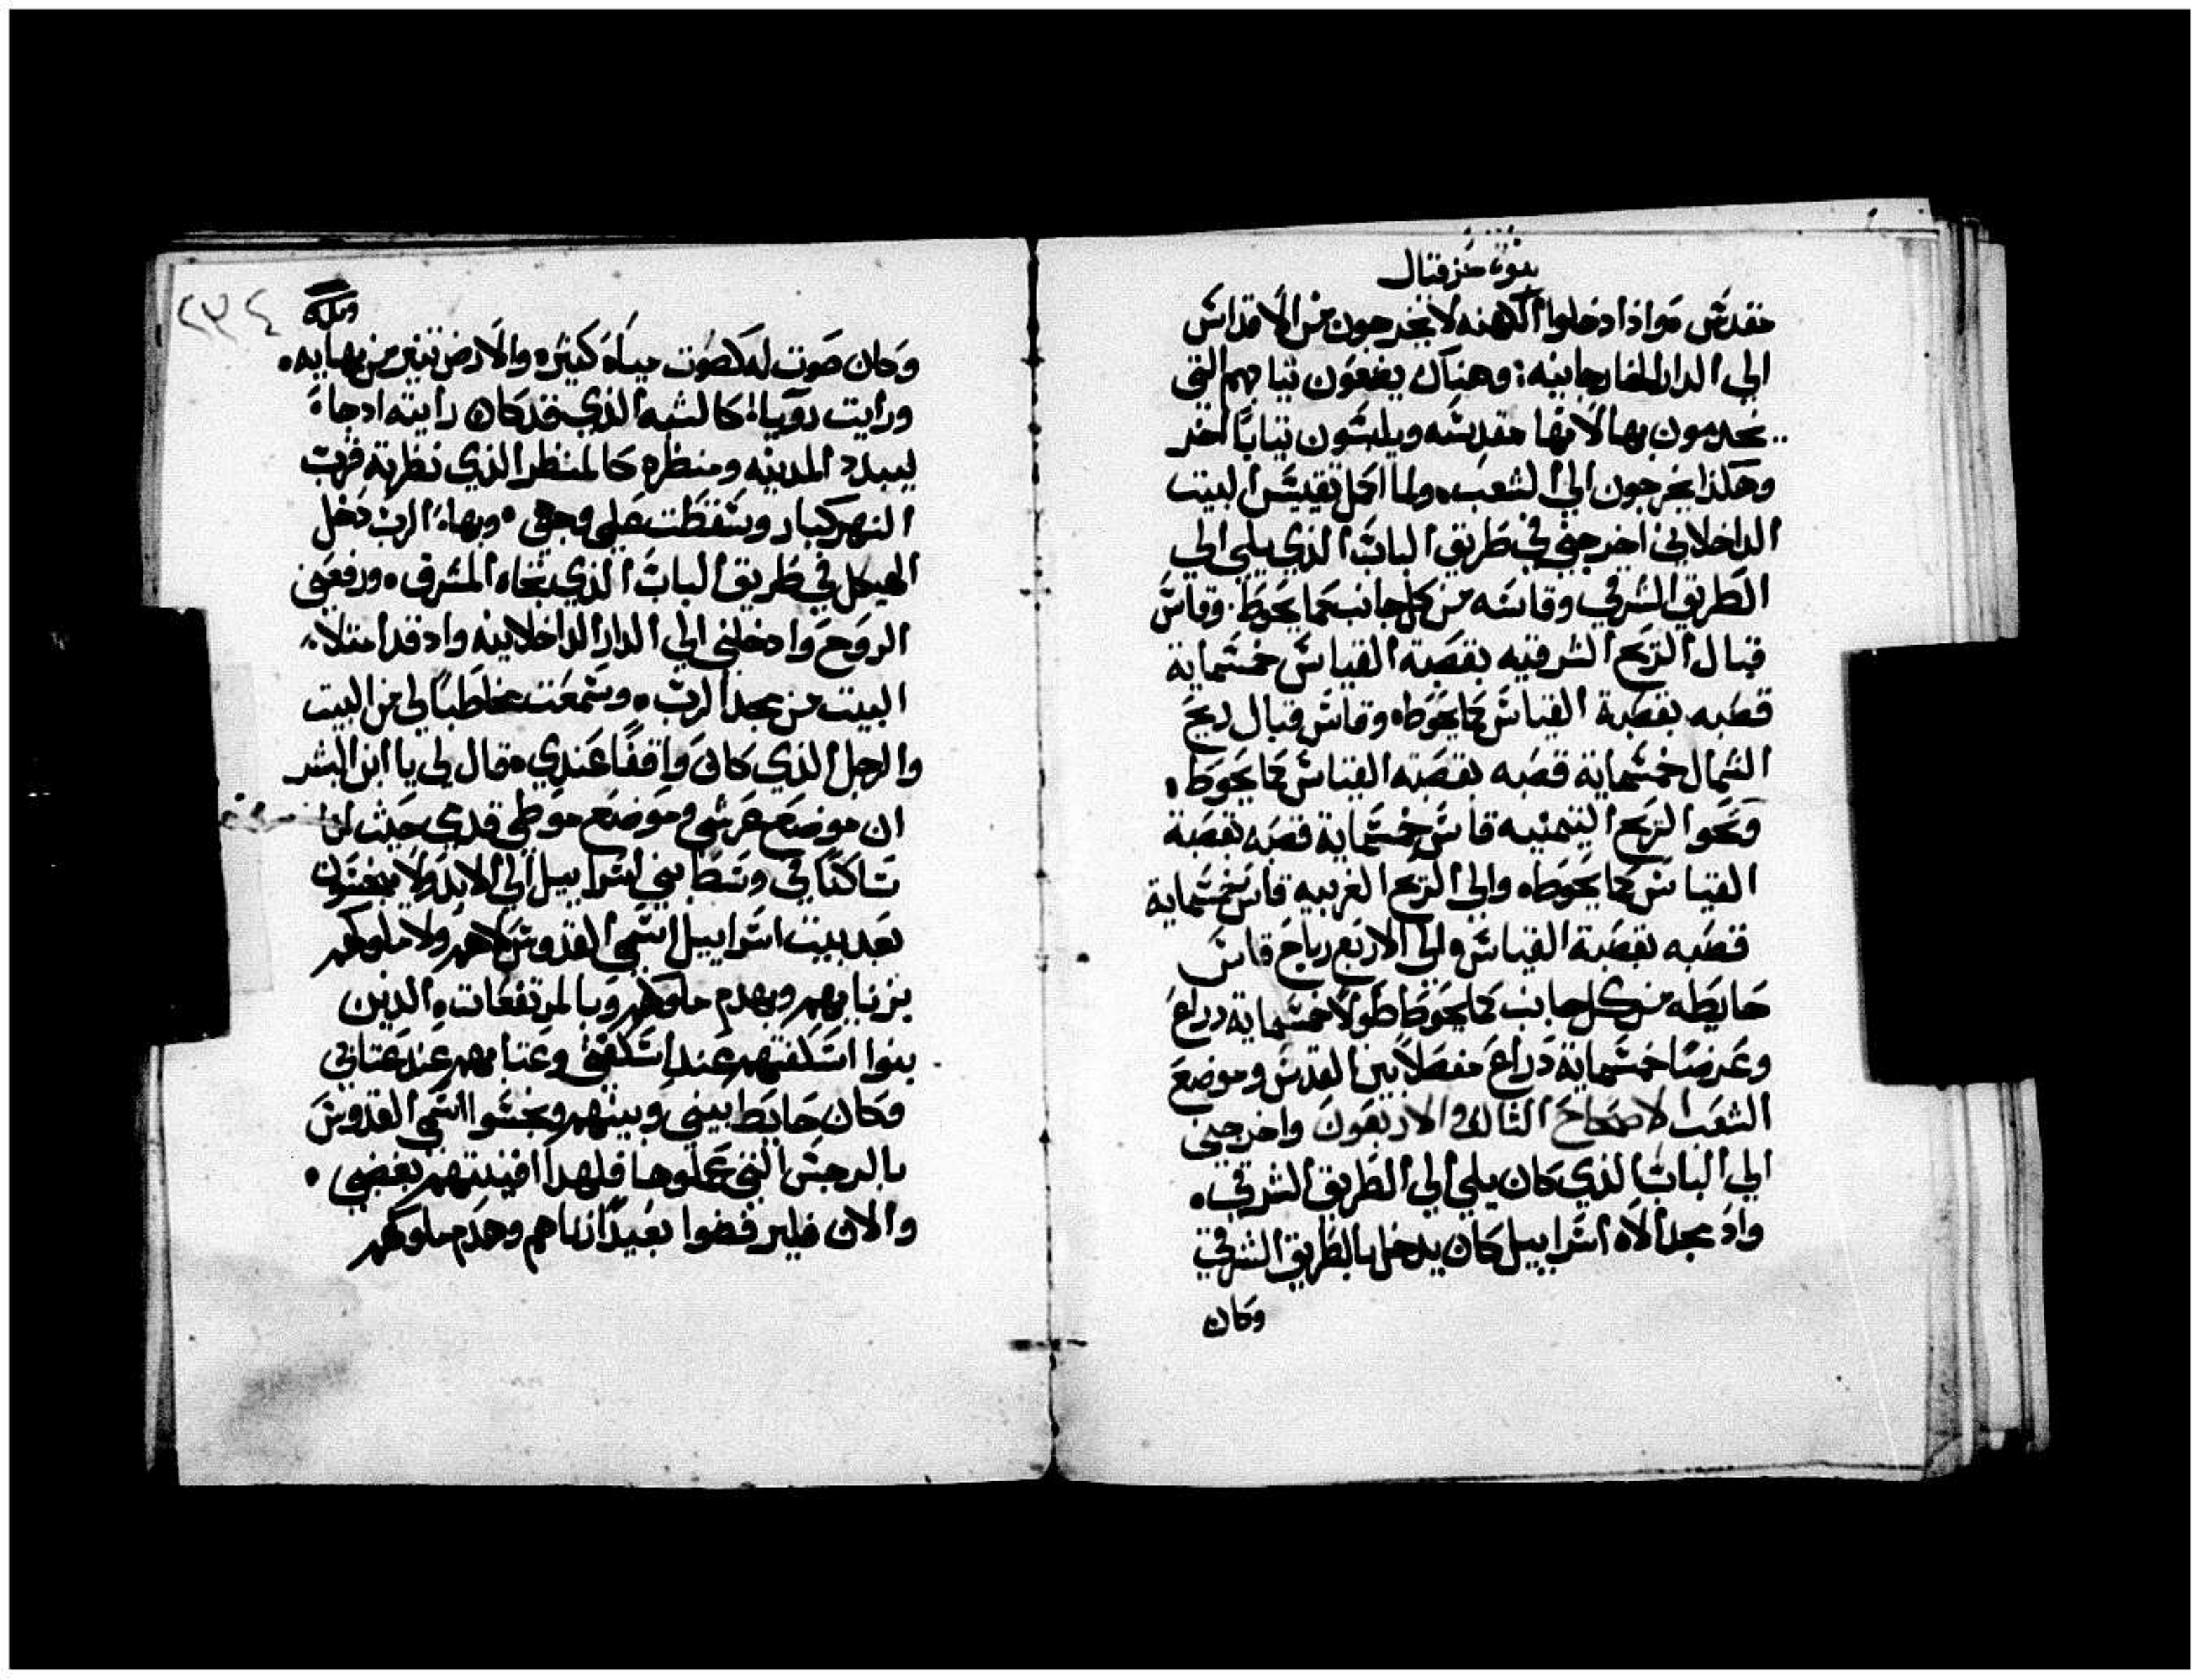 نبوة حزقيال
مقدس هو اذا دخلوا الكهنه لا يخرجون من الاقداس
الي الدار الخارجانيه: وهناك يضعون ثيابهم التي
يخدمون بها لانها مقدسه ويلبسون ثيابًا اخر
وهكذا يخرجون الي الشعب. ولما اكمل تقييس البيت
الداخلاني اخرجني في طريق الباب الذي يلي الي
الطريق الشرقي وقاسه من كل جانب كما يحوط. وقاس
قبال الريح الشرقيه بقصبة القياس خمسماية
قصبه بقصبة القياس كما يحوطه وقاس قبال ريح
الشمال خمسماية قصبه بقصبة القياس كما يحوط.
ونحوا الريح التيمنيه قاس خمسماية قصبه بقصبة
القياس كما يحوطه والي الريح الغربيه قاس خمسماية
قصبه بقصبة القياس والي الاربع رياح قاس
حايطه من كل جانب كما يحوط طولًا خمسماية دراع
وعرضًا خمسماية دراع مفصلًا بين القدس وموضع
الشعب الاصحاح الثالث والاربعون واخرجني
الي الباب الذي كان يلي الي الطريق الشرقي.
واد مجد الاه اسراييل كان يدخل بالطريق الشرقي
وكان
٢٣٤
وكان صوت له كصوت مياه كثيره والارض تنير من بهايه.
ورايت رويا كالشبه الذي قد كان رايته اد جاء
ليبدد المدينه ومنظره كالمنظر الذي نظرته قرب
النهر كبار وسقطت علي وجهي. وبهاء الرب دخل
الهيكل في طريق الباب الذي تجاه المشرق. ورفعني
الروح وادخلني الي الدار الداخلانيه واد قد امتلاء
البيت من مجد الرب. وسمعت مخاطبًا لي من البيت
والرجل الذي كان واقفًا عندي. قال لي يا ابن البشر
ان موضع عرشي وموضع موطي قدمي حيث انا
ساكنًا في وسط بني اسراييل الي الابد ولا ينجسون
بعد بيت اسراييل اسمي القدوس لا هم ولا ملوكهم
بزناهم وبهدم ملوكهم وبالمرتفعات. الدين
بنوا اسكفتهم عند اسكفتي وعتابهم عند عتابي
وكان حايط بيني وبينهم ونجسوا اسمي القدوس
بالرجس التي عملوها فلهدا افنيتهم بغضبي.
والان فليرفضوا بعيدًا زناهم وهدم ملوكهم